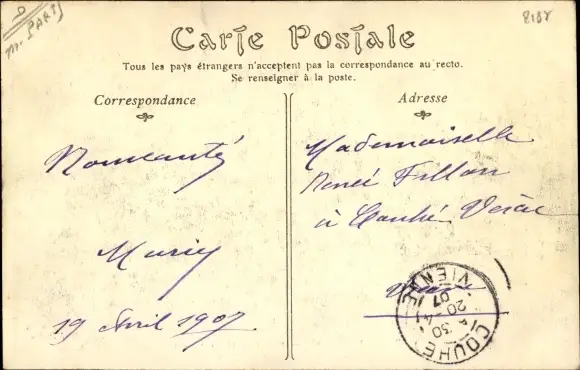 M. PARIS
Carte Postale
Tous les pays étrangers n'acceptent pas la correspondance au recto.
Se renseigner à la poste.
Correspondance
Nouveauté
Marie
19 Avril 1907
Adresse
Mademoiselle
Renée Fillon
à Couhé Vérac
Vienne
COUHÉ
30
20-4
07
VIENNE